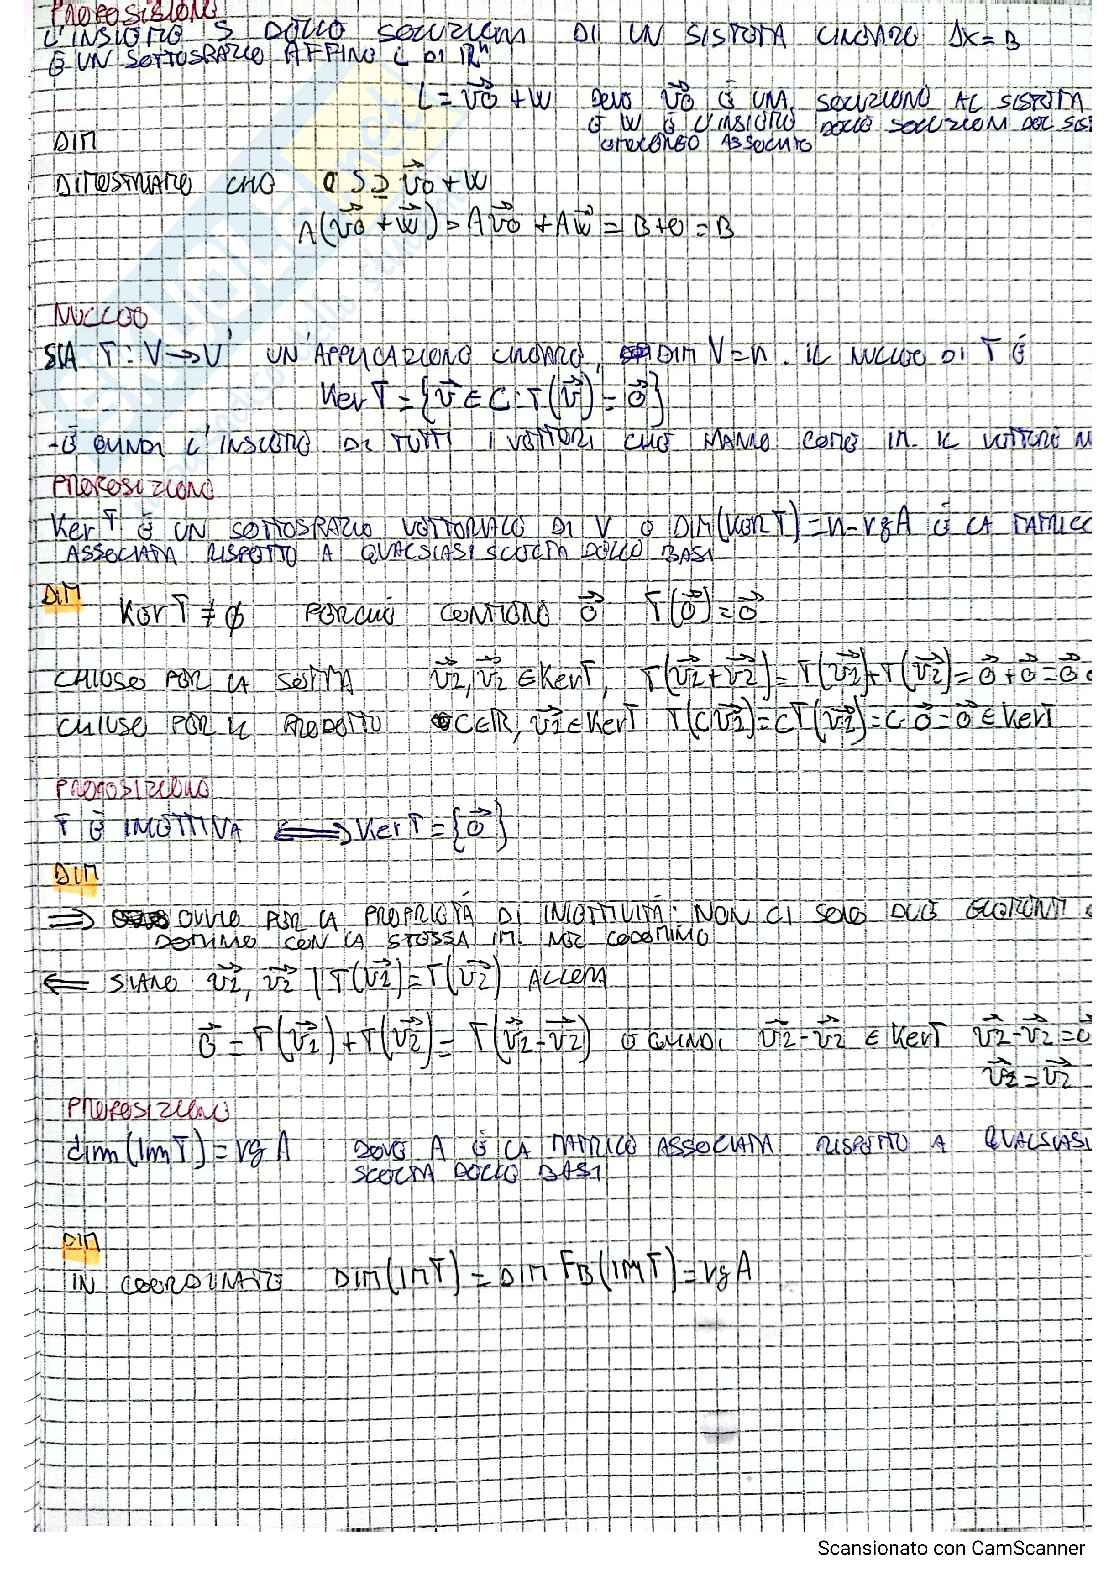 PROPOSIZIONE
L'INSIEME S DELLE SOLUZIONI DI UN SISTEMA LINEARE AX=B
È UN SOTTOSPAZIO AFFINE L DI R^n
L = v⃗0 + W DOVE v⃗0 È UNA SOLUZIONE AL SISTEMA
E W È L'INSIEME DELLE SOLUZIONI DEL SIS
OMOGENEO ASSOCIATO
DIM
DIMOSTRIAMO CHE S ⊇ v⃗0 + W
A(v⃗0 + w⃗) = Av⃗0 + Aw⃗ = B+0 = B
NUCLEO
SIA T: V → V' UN'APPLICAZIONE LINEARE, DIM V=n. IL NUCLEO DI T È
Ker T = {v⃗ ∈ C : T(v⃗) = 0⃗}
-È QUINDI L'INSIEME DI TUTTI I VETTORI CHE HANNO COME IM. IL VETTORE N
PROPOSIZIONE
Ker T È UN SOTTOSPAZIO VETTORIALE DI V E DIM(Ker T) = n - rg A È LA MATRICE
ASSOCIATA RISPETTO A QUALSIASI SCELTA DELLE BASI
DIM
Ker T ≠ ∅ PERCHÉ CONTIENE 0⃗ T(0⃗)=0⃗
CHIUSO PER LA SOMMA v⃗1, v⃗2 ∈ Ker T, T(v⃗1+v⃗2) = T(v⃗1)+T(v⃗2) = 0⃗+0⃗ = 0⃗
CHIUSO PER IL PRODOTTO C∈R, v⃗1 ∈ Ker T T(Cv⃗1) = CT(v⃗1) = C 0⃗ = 0⃗ ∈ Ker T
PROPOSIZIONE
T È INIETTIVA ⟺ Ker T = {0⃗}
DIM
⟹ OVVIO PER LA PROPRIETÀ DI INIETTIVITÀ: NON CI SONO DUE ELEMENTI
DOMINIO CON LA STESSA IM. NEL CODOMINIO
⟸ SIANO v⃗1, v⃗2 | T(v⃗1) = T(v⃗2) ALLORA
0⃗ = T(v⃗1) + T(v⃗2) = T(v⃗1 - v⃗2) E QUINDI v⃗1 - v⃗2 ∈ Ker T v⃗1 - v⃗2 = 0⃗
v⃗1 = v⃗2
PROPOSIZIONE
dim(Im T) = rg A DOVE A È LA MATRICE ASSOCIATA RISPETTO A QUALSIASI
SCELTA DELLE BASI
DIM
IN COORDINATE DIM(Im T) = DIM FB(Im T) = rg A
Scansionato con CamScanner